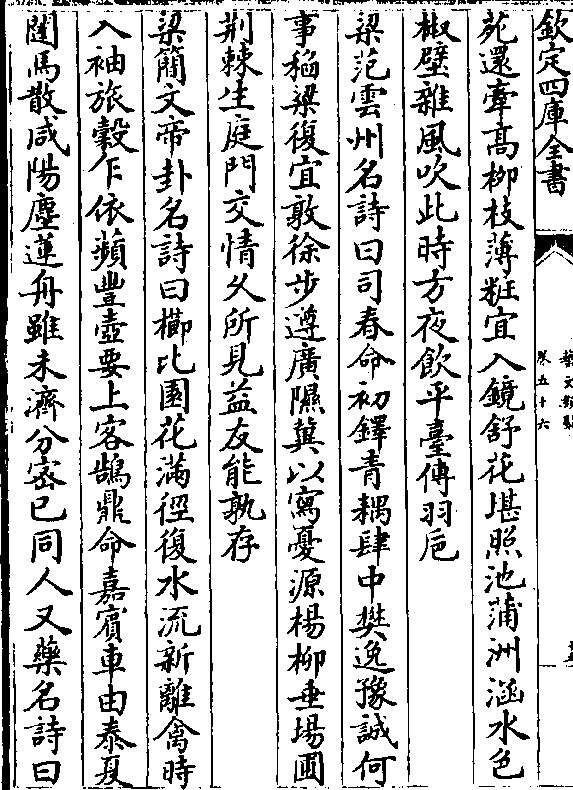 欽定四庫全書
藝文類聚
卷五十六
苑還牽高柳枝薄粧宜入鏡舒花堪照池蒲洲涵水色
椒壁雜風吹此時方夜飲平臺傳羽巵
梁范雲州名詩曰司春命初鐸青耦肆中樊逸豫誠何
事稻粱復宜敦徐步遵廣隰冀以寫憂源楊柳垂場圃
荆棘生庭門交情乆所見益友能孰存
梁簡文帝卦名詩曰櫛比園花滿徑復水流新離禽時
入袖旅穀乍依蘋豐壺要上客鵠鼎命嘉賓車由泰夏
闥馬散咸陽塵蓮舟雖未濟分密已同人又藥名詩曰